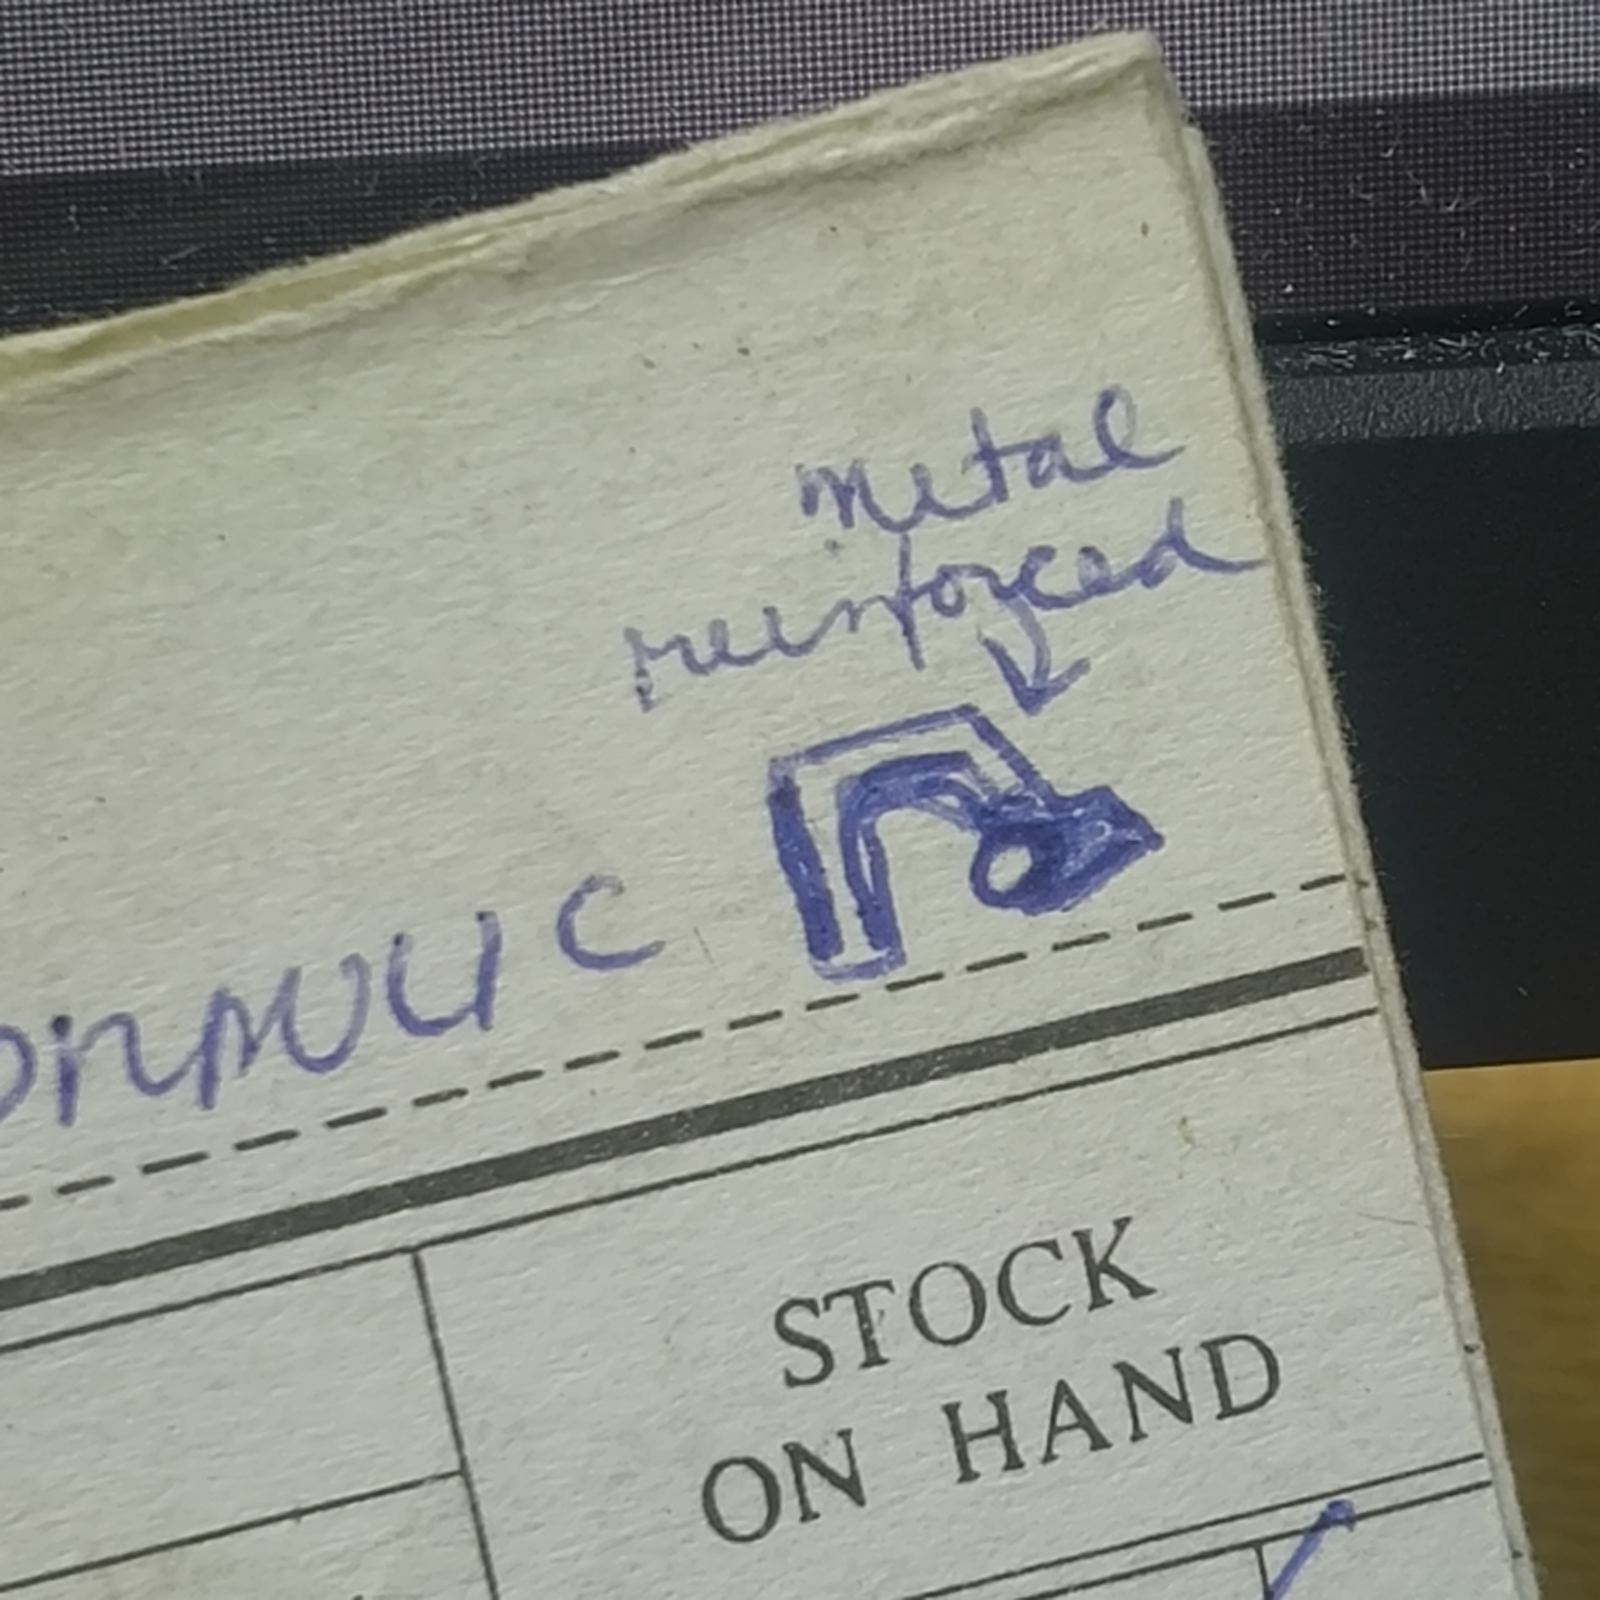 metal
reinforced
STOCK
ON HAND